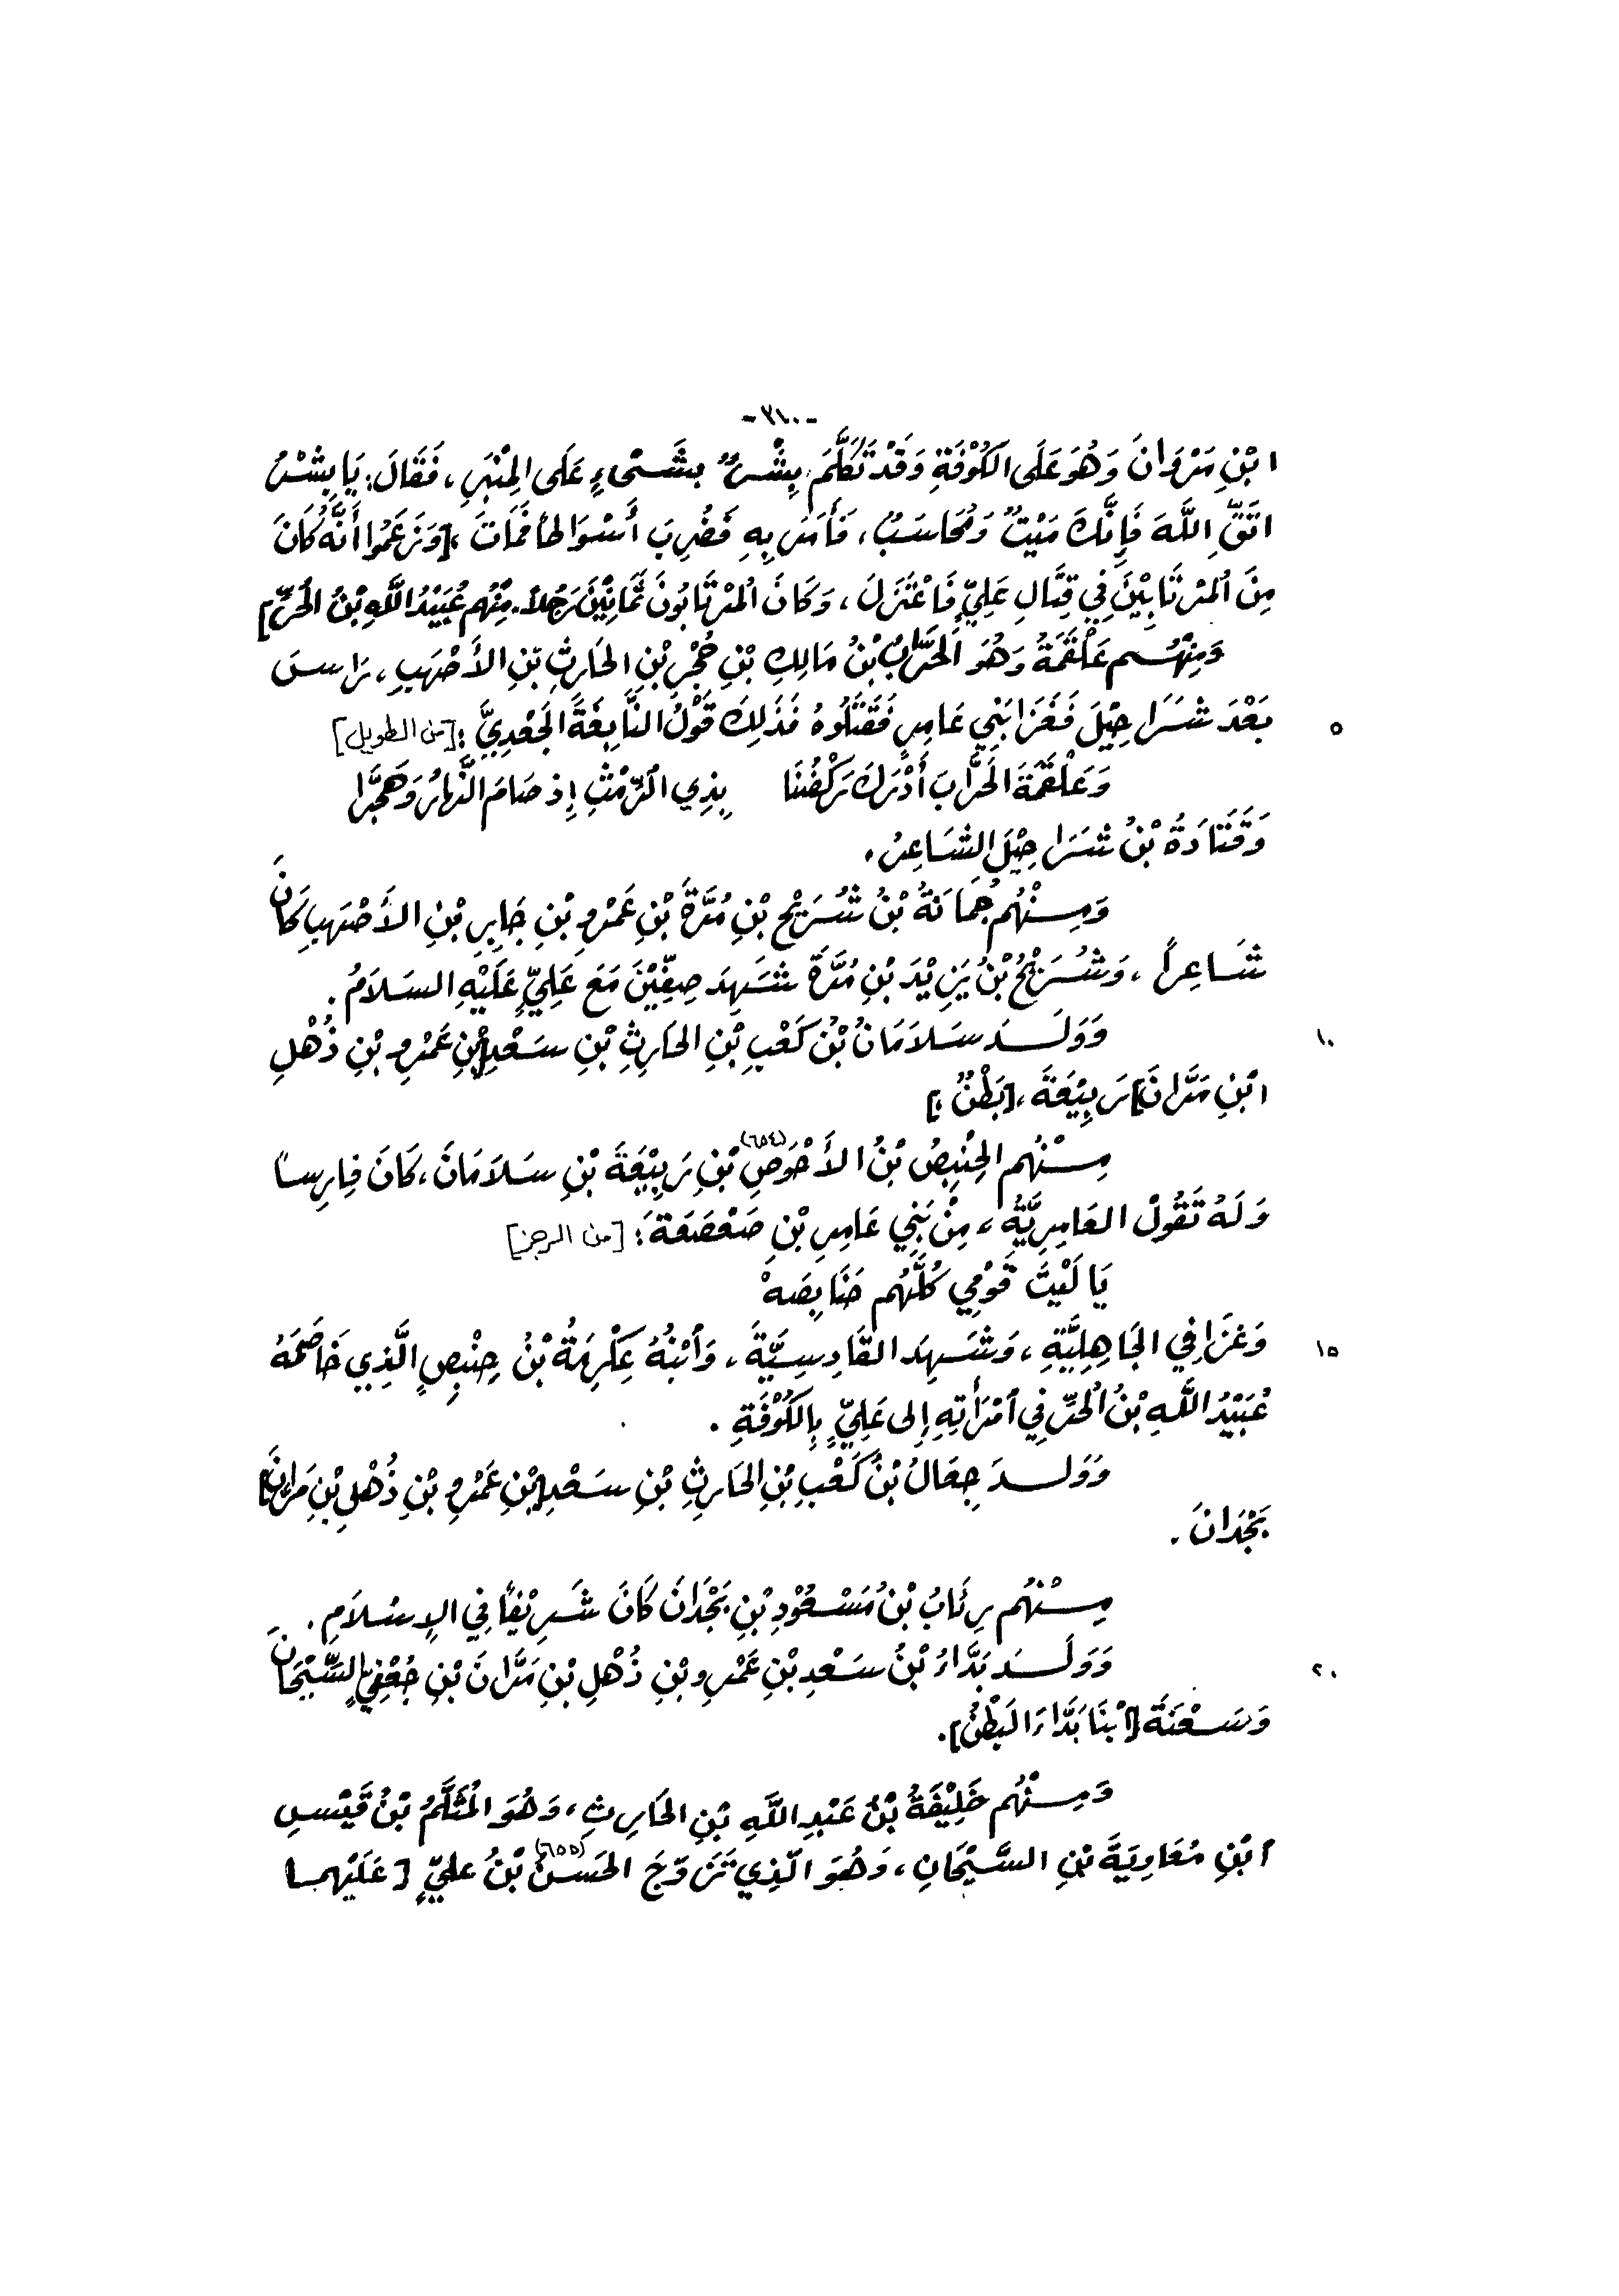 -٣١٠-
ابْنِ مَرْوَانَ وَهُوَ عَلَى الكُوْفَةِ وَقَدْ تَكَلَّمَ بِشْرٌ بِشَىْءٍ عَلَى المِنْبَرِ، فَقَالَ: يَا بِشْرُ
اتَّقِ اللَّهَ فَإِنَّكَ مَيْتٌ وَمُحَاسَبٌ، فَأَمَرَ بِهِ فَضُرِبَ أَسْوَاطًا فَمَاتَ، [وَزَعَمُوا أَنَّهُ كَانَ
مِنَ ٱلمُرْتَابِيْنَ فِي قِتَالِ عَلِيٍّ فَاعْتَزَلَ، وَكَانَ ٱلمُرْتَابُونَ ثَمَانِيْنَ رَجُلاً. مِنْهُم عُبَيْدُ اللَّهِ بْنُ الحُرِّ]
وَمِنْهُم عَلْقَمَةُ وَهُوَ الحَرَّابُ بْنُ مَالِكِ بْنِ حُجْرِ بْنِ الحَارِثِ بْنِ الأَصْهَبِ، رَاسَ
٥ بَعْدَ شَرَاحِيْلَ فَغَزَا بَنِي عَامِرٍ فَقَتَلُوهُ فَذَلِكَ قَوْلُ النَّابِغَةَ الجَعْدِيَّ: [من الطويل]
وَعَلْقَمَةَ الحَرَّابَ أَدْرَكَ رَكْضُنَا بِذِي ٱلرِّمْثِ إِذ صَامَ النَّهَارُ وَهَجَّرَا
وَقَتَادَةُ بْنُ شَرَاحِيْلَ الشَاعِرُ.
وَمِنْهُم جُمَانَةُ بْنُ شُرَيْحِ بْنِ مُرَّةَ بْنِ عَمْرِو بْنِ جَابِرِ بْنِ الأَصْهَبِ كَانَ
شَاعِراً، وَشُرَيْحُ بْنُ يَزِيْدَ بْنِ مُرَّةَ شَهِدَ صِفِّيْنَ مَعَ عَلِيٍّ عَلَيْهِ السَلاَمُ.
١٠ وَوَلَدَ سَلاَمَانُ بْنُ كَعْبِ بْنِ الحَارِثِ بْنِ سَعْدِ [بْنِ عَمْرِو بْنِ ذُهْلِ
ٱبْنِ مَرَّانَ] رَبِيْعَةَ، [بَطْنٌ.]
مِنْهُم الحِنْبِصُ بْنُ الأَحْوَصِ (٦٥٤) بْنِ رَبِيْعَةَ بْنِ سَلاَمَانَ، كَانَ فَارِساً
وَلَهُ تَقُولُ العَامِرِيَّةُ، مِنْ بَنِي عَامِرِ بْنِ صَعْصَعَةَ: [من الرجز]
يَا لَيْتَ قَوْمِي كُلَّهُم حَنَابِصَهْ
١٥ وَغَزَا فِي الجَاهِلِيَّةِ، وَشَهِدَ القَادِسِيَّةَ، وَٱبْنُهُ عِكْرِمَةُ بْنُ حِنْبِصٍ الَّذِي خَاصَمَهُ
عُبَيْدُ اللَّهِ بْنُ ٱلحُرِّ فِي ٱمْرَأَتِهِ إِلى عَلِيٍّ بِالكُوْفَةِ.
وَوَلَدَ جِعَالُ بْنُ كَعْبِ بْنِ الحَارِثِ بْنِ سَعْدِ [بْنِ عَمْرِو بْنِ ذُهْلِ بْنِ مَرَّانَ]
بَجْدَانَ.
مِنْهُم رِئَابُ بْنُ مَسْعُوْدِ بْنِ بَجْدَانَ كَانَ شَرِيْفاً فِي الإِسْلاَمِ.
٢٠ وَوَلَدَ بَدَّاءُ بْنُ سَعْدِ بْنِ عَمْرِو بْنِ ذُهْلِ بْنِ مَرَّانَ بْنِ جُعْفِيٍّ السَّيْحَانَ
وَسَعْنَةَ [ٱبْنَا بَدَّاءَ البَطْنُ].
وَمِنْهُم خَلِيْفَةُ بْنُ عَبْدِ اللَّهِ بْنِ الحَارِثِ، وَهُوَ المُثَلَّمُ بْنُ قَيْسِ
ٱبْنِ مُعَاوِيَةَ بْنِ السَّيْحَانِ، وَهُوَ الَّذِي تَزَوَّجَ الحَسَنُ (٦٥٥) بْنُ عَلِيٍّ [عَلَيْهِمَا